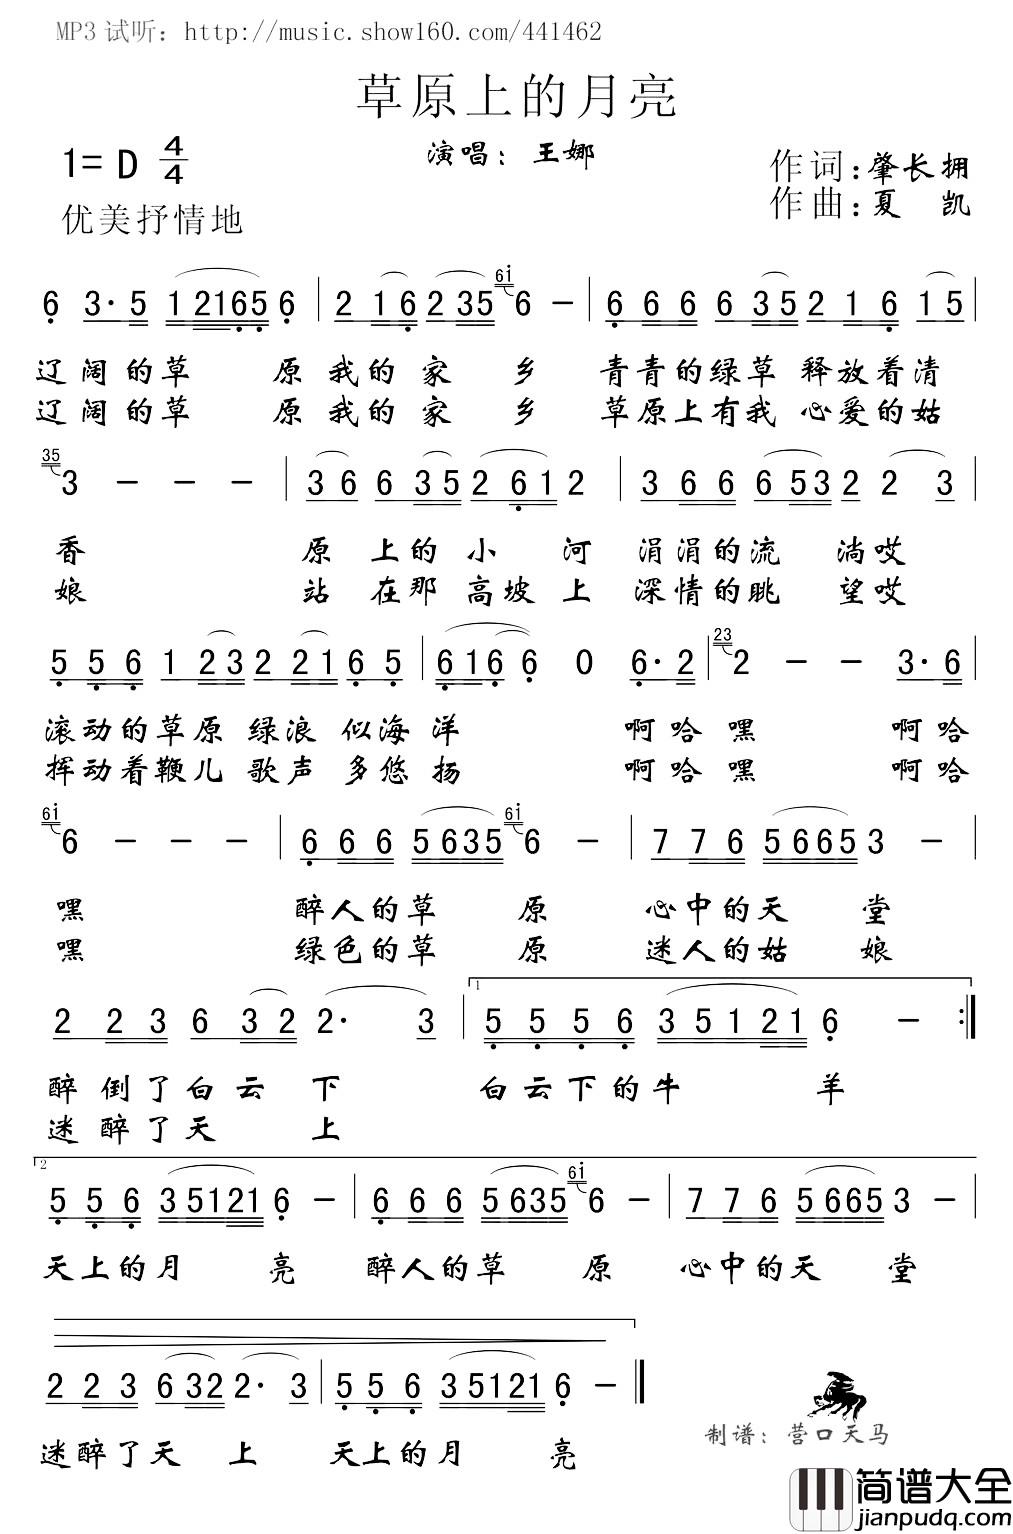 MP3 试听：http://music.show160.com/441462
草原上的月亮
1= D 4/4
演唱：王娜
作词：肇长拥
优美抒情地
作曲：夏 凯
6 3· 5 1 2 1 6 5 6 | 2 1 6 2 3 5 6i 6 － | 6 6 6 6 3 5 2 1 6 1 5 |
辽 阔 的 草 原 我 的 家 乡 青 青 的 绿 草 释 放 着 清
辽 阔 的 草 原 我 的 家 乡 草 原 上 有 我 心 爱 的 姑
35 3 － － － | 3 6 6 3 5 2 6 1 2 | 3 6 6 6 5 3 2 2 3 |
香 原 上 的 小 河 涓 涓 的 流 淌 哎
娘 站 在 那 高 坡 上 深 情 的 眺 望 哎
5 5 6 1 2 3 2 2 1 6 5 | 6 1 6 6 0 6· 2 | 23 2 － － 3· 6 |
滚 动 的 草 原 绿 浪 似 海 洋 啊 哈 嘿 啊 哈
挥 动 着 鞭 儿 歌 声 多 悠 扬 啊 哈 嘿 啊 哈
6i 6 － － － | 6 6 6 5 6 3 5 6i 6 － | 7 7 6 5 6 6 5 3 － |
嘿 醉 人 的 草 原 心 中 的 天 堂
嘿 绿 色 的 草 原 迷 人 的 姑 娘
2 2 3 6 3 2 2· 3 | 1 5 5 5 6 3 5 1 2 1 6 － :|
醉 倒 了 白 云 下 白 云 下 的 牛 羊
迷 醉 了 天 上
2 5 5 6 3 5 1 2 1 6 － | 6 6 6 5 6 3 5 6i 6 － | 7 7 6 5 6 6 5 3 － |
天 上 的 月 亮 醉 人 的 草 原 心 中 的 天 堂
2 2 3 6 3 2 2· 3 | 5 5 6 3 5 1 2 1 6 － ‖
迷 醉 了 天 上 天 上 的 月 亮
制谱：营口天马
简谱大全
jianpudq.com